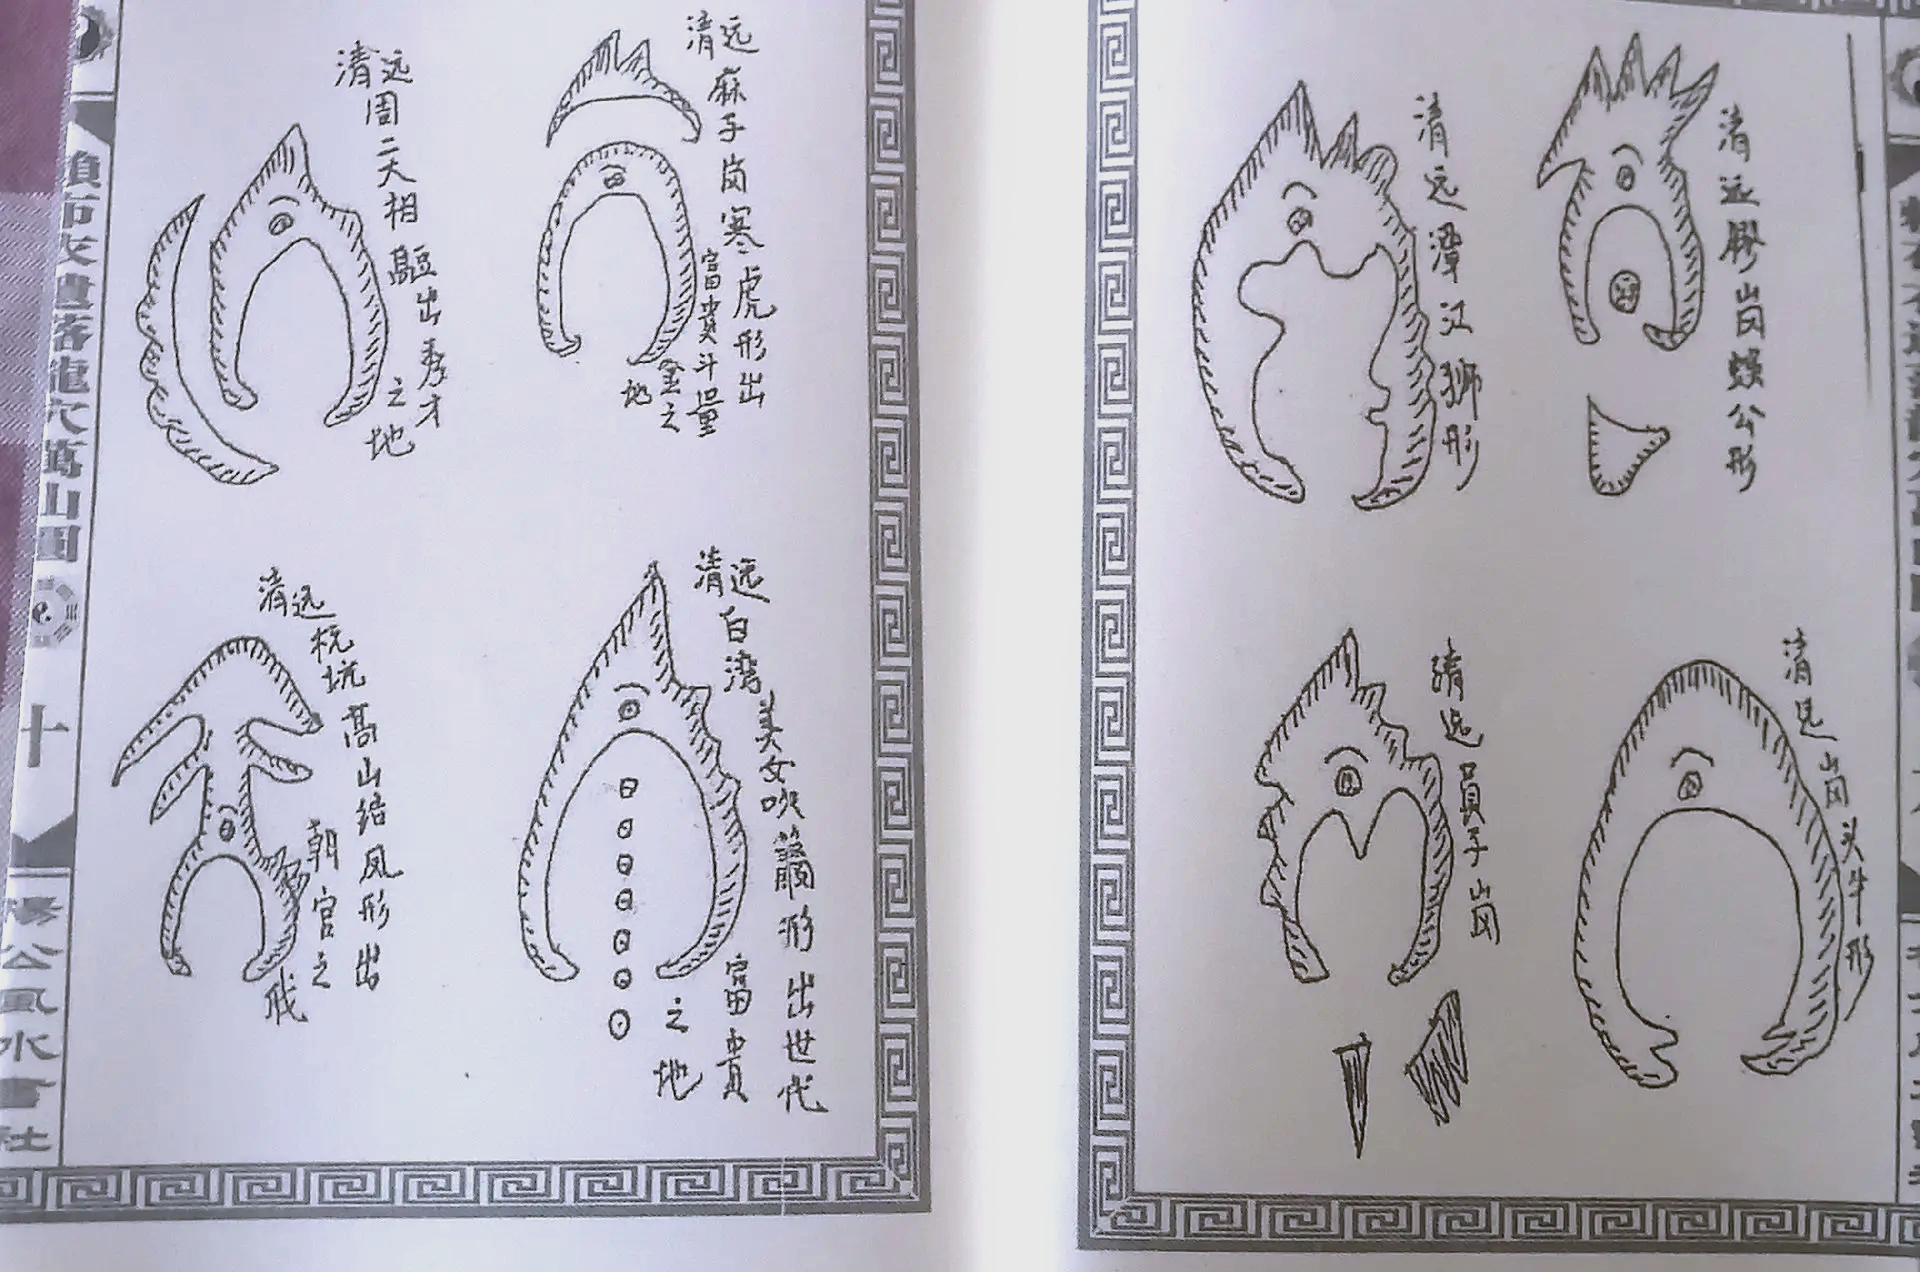 清远麻子岗寒虎形出
富貴斗量
金之
地
清远周二大相
出秀才
之地
清远白湾美女吹簫形出世代
富貴
之地
清远
坑高山结凤形出
朝官之
清远膠山岗蜈公形
清远潭江狮形
清远岗头牛形
清远員子岗
賴布衣遺落龍穴萬山图
十
楊公風水書社